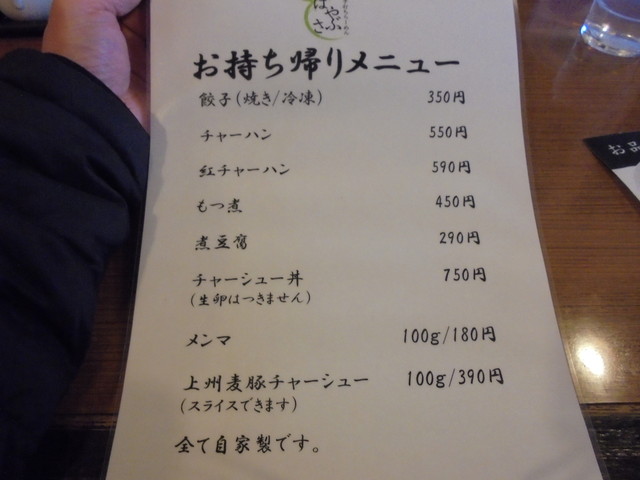 はやぶさ
お持ち帰りメニュー
餃子(焼き/冷凍) 350円
チャーハン 550円
紅チャーハン 590円
もつ煮 450円
煮豆腐 290円
チャーシュー丼 750円
(生卵はつきません)
メンマ 100g/180円
上州麦豚チャーシュー 100g/390円
(スライスできます)
全て自家製です。
お品